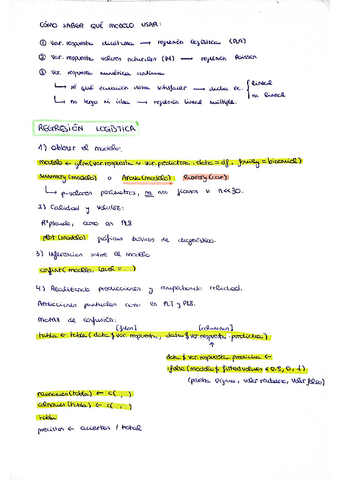 CÓMO SABER QUÉ MODELO USAR:
① var. respuesta dicotómica → regresión logística (PL7)
② var. respuesta valores naturales (N) → regresión Poisson
③ var. respuesta numérica continua
→ sé qué ecuación debe satisfacer → dicha ec. lineal
no lineal
→ no tengo ni idea → regresión lineal múltiple.
REGRESIÓN LOGÍSTICA
1) Obtener el modelo.
modelo ← glm(var.respuesta ~ var.predictora, data = df, family = binomial)
summary(modelo) o Anova(modelo) library(car)
→ p-valores parámetros, no nos fiamos si n<30.
2) Calidad y validez:
R² pseudo, como en PL8
plot(modelo) gráficos básicos de diagnóstico.
3) Inferencias sobre el modelo
confint(modelo, level = ...)
4) Realizando predicciones y comprobando calidad.
Predicciones puntuales como en PL7 y PL8.
Matriz de confusión:
[filas] [columnas]
tabla ← table(data$var.respuesta, data$var.respuesta.predicha)
data$var.respuesta.predicha ←
ifelse(modelo$fitted.values < 0.5, 0, 1)
rownames(tabla) ← c( , )
colnames(tabla) ← c( , )
tabla
precisión ← aciertos / total